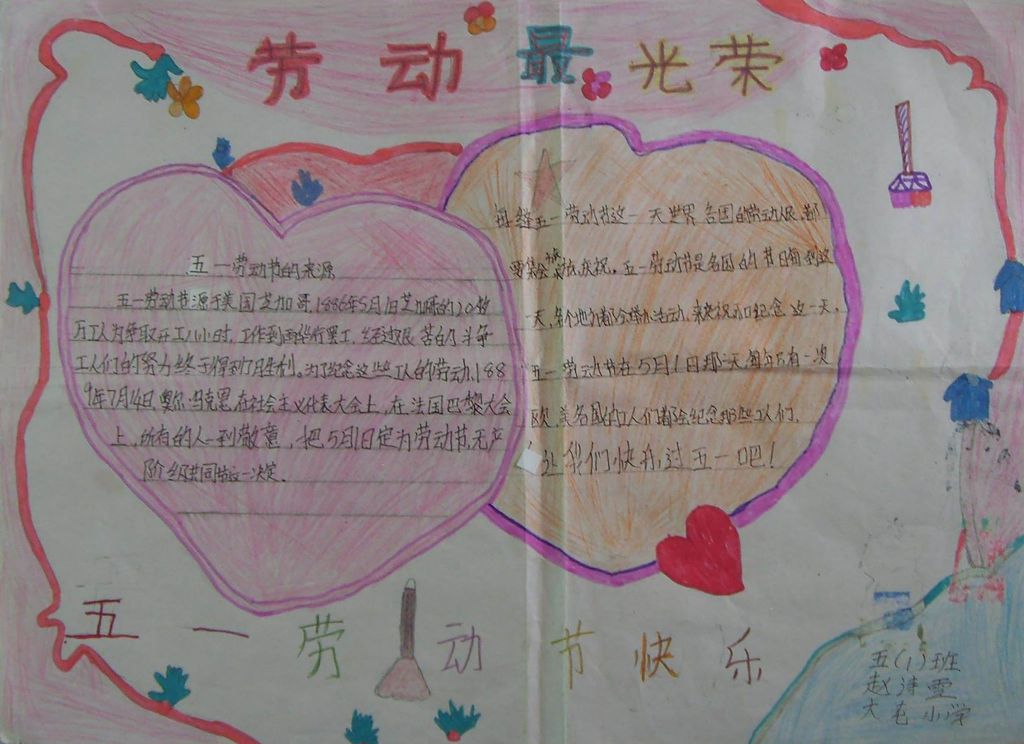 劳动最光荣
五一劳动节的来源
五一劳动节源于美国芝加哥.1886年5月1日芝加哥的20多
万工人为争取开工八小时.工作到而举行罢工,经过艰苦的斗争
工人们的努力终于得到了胜利。为了纪念这些工人的劳动.188
9年7月14日,奥尔.马克思.在社会主义代表大会上,在法国巴黎大会
上,所有的人一到敬童,把5月1日定为劳动节.无产
阶级共同一决定.
每逢五一劳动节这一天世界各国的劳动人民.都
要集会 庆祝。五一劳动节是各国的节日每到这
一天,各个地方都会举办活动,来庆祝和纪念这一天,
五一劳动节在5月1日那天.每年只有一次
欧.美各国的工人们都会纪念那些工人们.
让我们快乐过五一吧!
五一劳动节快乐
五(1)班
赵诗雪
大屯小学